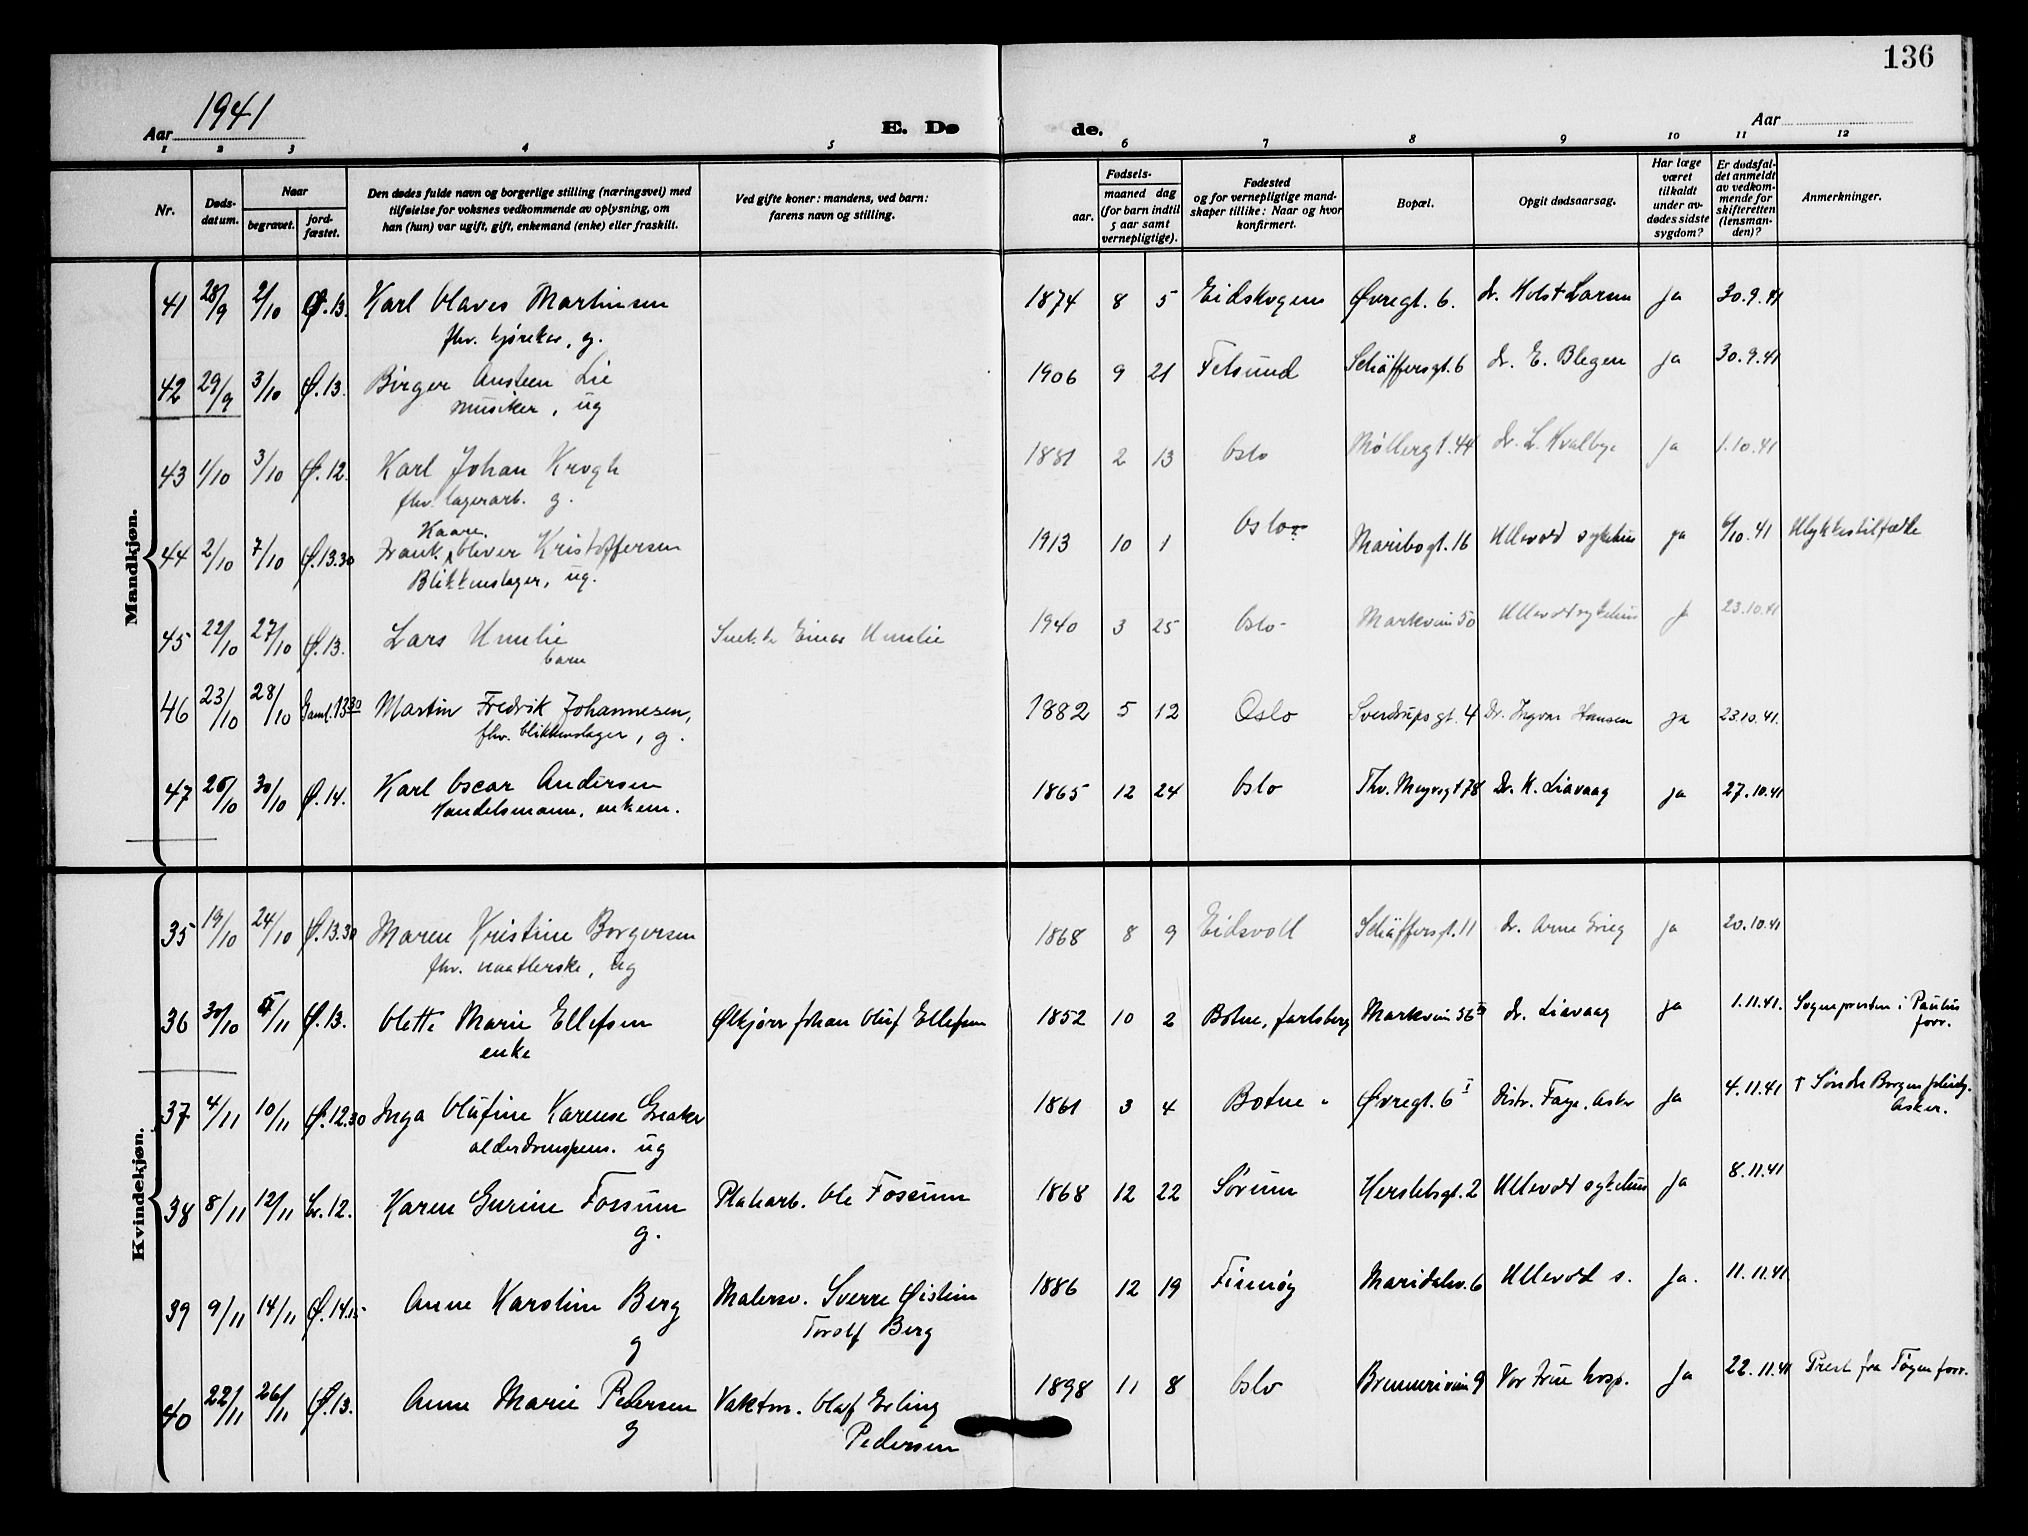 136
Aar 1941
E. Dø
de.
Aar
1 2 3 4 5 6 7 8 9 10 11 12
Nr.
Døds-
datum.
Naar
begravet.
jord-
fæstet.
Den dødes fulde navn og borgerlige stilling (næringsvei) med
tilføielse for voksnes vedkommende av oplysning, om
han (hun) var ugift, gift, enkemand (enke) eller fraskilt.
Ved gifte koner: mandens, ved barn:
farens navn og stilling.
Fødsels-
aar.
maaned dag
(for barn indtil
5 aar samt
vernepligtige).
Fødested
og for vernepligtige mand-
skaper tillike: Naar og hvor
konfirmert.
Bopæl.
Opgit dødsaarsag.
Har læge
været
tilkaldt
under av-
dødes sidste
sygdom?
Er dødsfal-
det anmeldt
av vedkom-
mende for
skifteretten
(lensman-
den)?
Anmerkninger.
Mandkjøn.
41 28/9 2/10 Ø.13. Karl Olaves Martinsen 1874 8 5 Eidskogen Øvregt. 6. dr. Holst Larsen ja 30.9.41
fhv. kjørekar, g.
42 29/9 3/10 Ø.13. Birger Austeen Lie 1906 9 21 Fetsund Schäffersgt. 6 dr. E. Blegen ja 30.9.41
musiker, ug
43 1/10 3/10 Ø.12. Karl Johan Krogh 1881 2 13 Oslo Møllergt. 44 dr. L. Kvalbye ja 1.10.41
fhv. lagerarb. g.
Kaare
44 2/10 7/10 Ø.13.30 Frank Oliver Kristoffersen 1913 10 1 Oslo Maribogt. 16 Ullevold sykehus ja 6/10.41 Ulykkestilfælle
Blikkenslager, ug.
45 22/10 27/10 Ø.13. Lars Umlie Snek. Einar Umlie 1940 3 25 Oslo Markveien 50 Ullevold sykehus ja 23.10.41
barn
46 23/10 28/10 Gaml. 13.30 Martin Fredrik Johannesen, 1882 5 12 Oslo Sverdrupsgt. 4 Dr. Ingvar Hansen ja 23.10.41.
fhv. blikkenslager, g.
47 26/10 30/10 Ø.14. Karl Oscar Andersen 1865 12 24 Oslo Thv. Meyersgt 78 Dr. K. Liavaag ja 27.10.41
Handelsmann, enkem.
Kvindekjøn.
35 19/10 24/10 Ø.13.30 Maren Kristine Borgersen 1868 8 9 Eidsvoll Schäffersgt. 11 dr. Arne Grieg ja 20.10.41
fhv. maatterske, ug
36 30/10 5/11 Ø.13. Olette Marie Ellefsen Ølkjører Johan Oluf Ellefsen 1852 10 2 Botne, Jarlsberg Markveien 56 dr. Liavaag ja 1.11.41. Sognepresten i Paulus
forr.
enke
37 4/11 10/11 Ø.12.30 Inga Olufine Karense Greaker 1861 3 4 Botne " Øvregt. 6 I Distr. Faye. Asker ja 4.11.41 † Søndre Borgen
Asker.
alderdomspens. ug
38 8/11 12/11 Gr. 12. Karen Gurine Fossum Platearb. Ole Fossum 1868 12 22 Sørum Herslebsgt. 2 Ullevold sykehus ja 8.11.41
g.
39 9/11 14/11 Ø.14.15 Anne Karoline Berg Malersv. Sverre Øistein 1886 12 19 Finnøy Maridalsv. 6 Ullevold s. ja. 11.11.41
g Torolf Berg
40 22/11 26/11 Ø.13. Anne Marie Pedersen Vaktm. Olaf Erling 1898 11 8 Oslo Brenneriveien 9 Vor Frue hosp. ja 22.11.41 Prest fra Tøyen forr.
g Pedersen